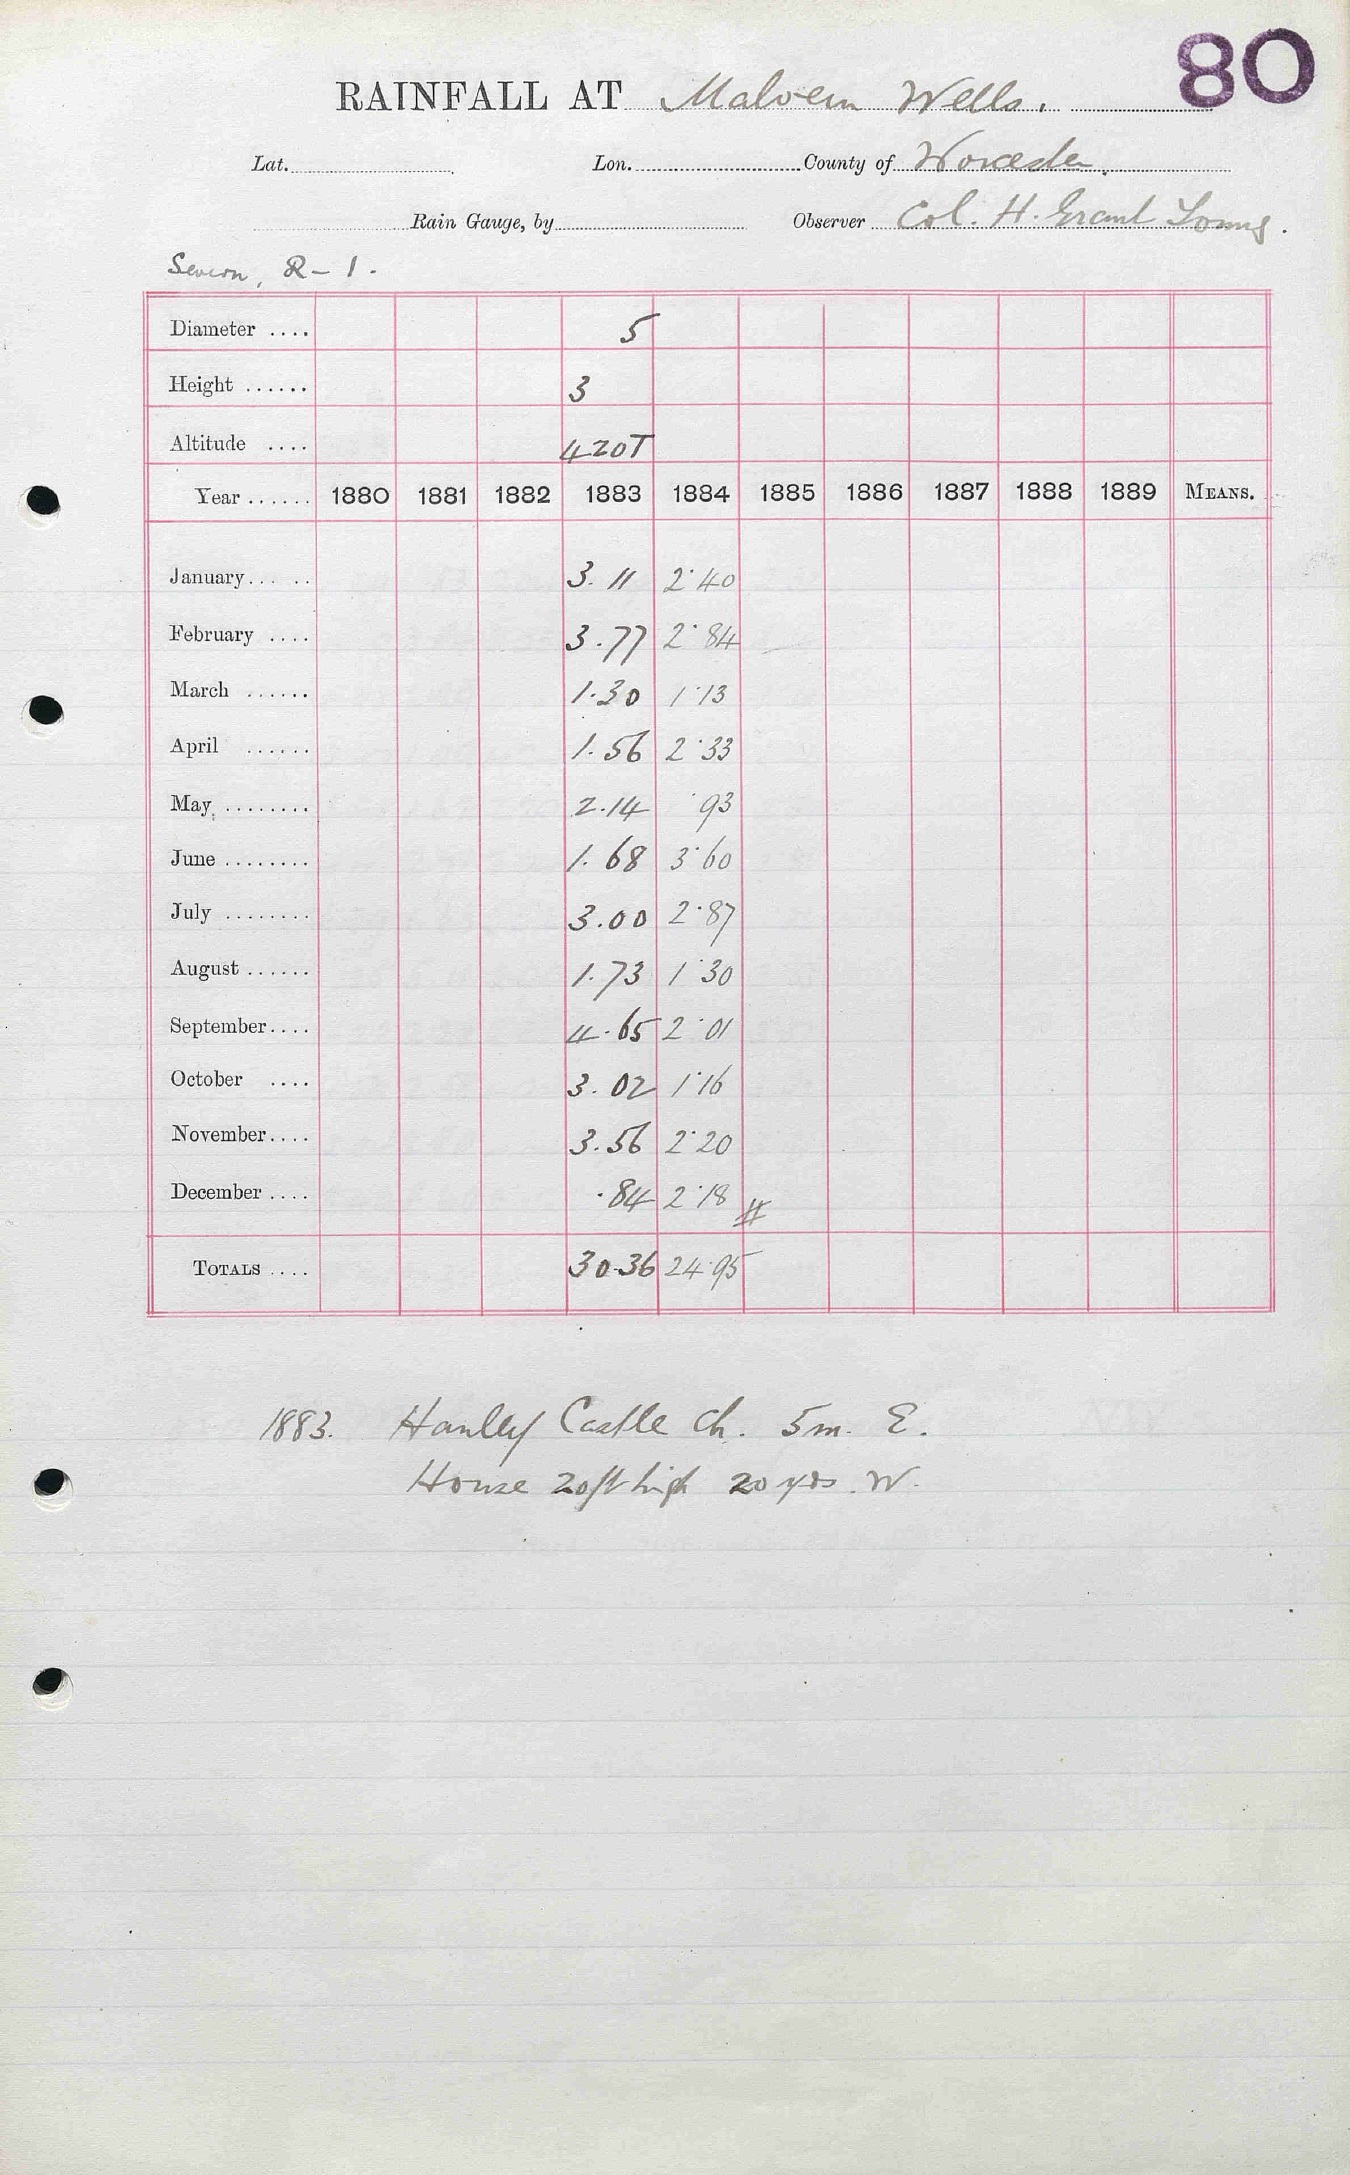 80
RAINFALL AT Malvern Wells.
Lat. Lon. County of Worcester.
Rain Gauge, by Observer Col. H. Grant Young.
Severn, R-1.
Diameter .... 5
Height ...... 3
Altitude .... 420T
Year ...... 1880 1881 1882 1883 1884 1885 1886 1887 1888 1889 MEANS.
January.... 3.11 2.40
February .... 3.77 2.84
March ...... 1.30 1.13
April ...... 1.56 2.33
May ........ 2.14 .93
June ........ 1.68 3.60
July ........ 3.00 2.87
August ...... 1.73 1.30
September.... 4.65 2.01
October .... 3.02 1.16
November.... 3.56 2.20
December .... .84 2.18 #
TOTALS .... 30.36 24.95
1883. Hanley Castle Ch. 5m. E.
House 20ft high 20 yds. W.